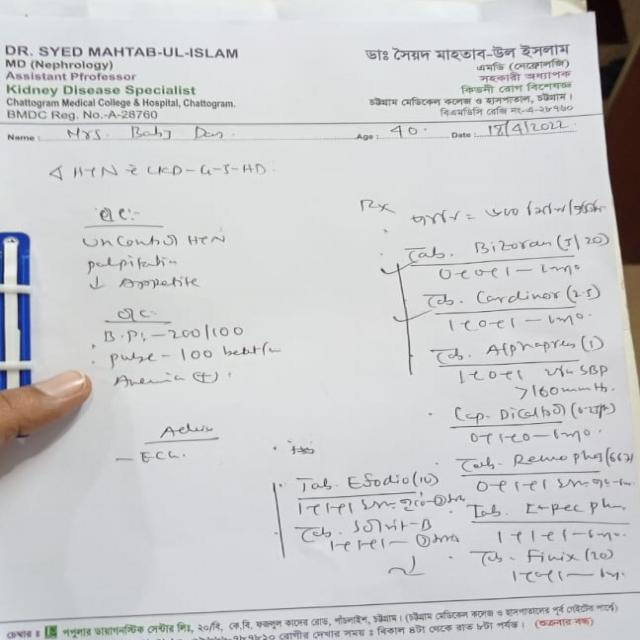 DR. SYED MAHTAB-UL-ISLAM
MD (Nephrology)
Assistant Pfrofessor
Kidney Disease Specialist
Chattogram Medical College & Hospital, Chattogram.
BMDC Reg. No.-A-28760
ডাঃ সৈয়দ মাহতাব-উল ইসলাম
এমডি (নেফ্রোলজি)
সহকারী অধ্যাপক
কিডনী রোগ বিশেষজ্ঞ
চট্টগ্রাম মেডিকেল কলেজ ও হাসপাতাল, চট্টগ্রাম।
বিএমডিসি রেজি নং-এ-২৮৭৬০
Name: Mrs. Baby Das. Age: 40. Date: 18/4/2022
HTN CKD-G-5-HD
Uncontrol HTN
palpitation
↓ Appetite
O/E:
B.P:-200/100
pulse-100 beat/m
Anemia (+)
Advice
- ECG.
Rx
Tab. Bizoran (5/20)
0+0+1-
Tab. Cardinor (2.5)
1+0+1-
Tab. Alphapres (1)
1+0+1 SBP
>160 mmHg.
Cap. Dicaltrol
0+1+0-
Tab. Renophos (667)
0+1+1
Tab. Esodio (10)
1+1+1
Tab. Solvit-B
1+1+1-
1+1+1-
Tab. Finix (20)
1+0+1-
চেম্বার: পপুলার ডায়াগনস্টিক সেন্টার লিঃ, ২০/বি, কে.বি. ফজলুল কাদের রোড, পাঁচলাইশ, চট্টগ্রাম। (চট্টগ্রাম মেডিকেল কলেজ ও হাসপাতালের পূর্ব গেইটের পার্শ্বে)
রোগীর দেখার সময় : বিকাল ৪টা থেকে রাত ৮টা পর্যন্ত। (শুক্রবার বন্ধ)